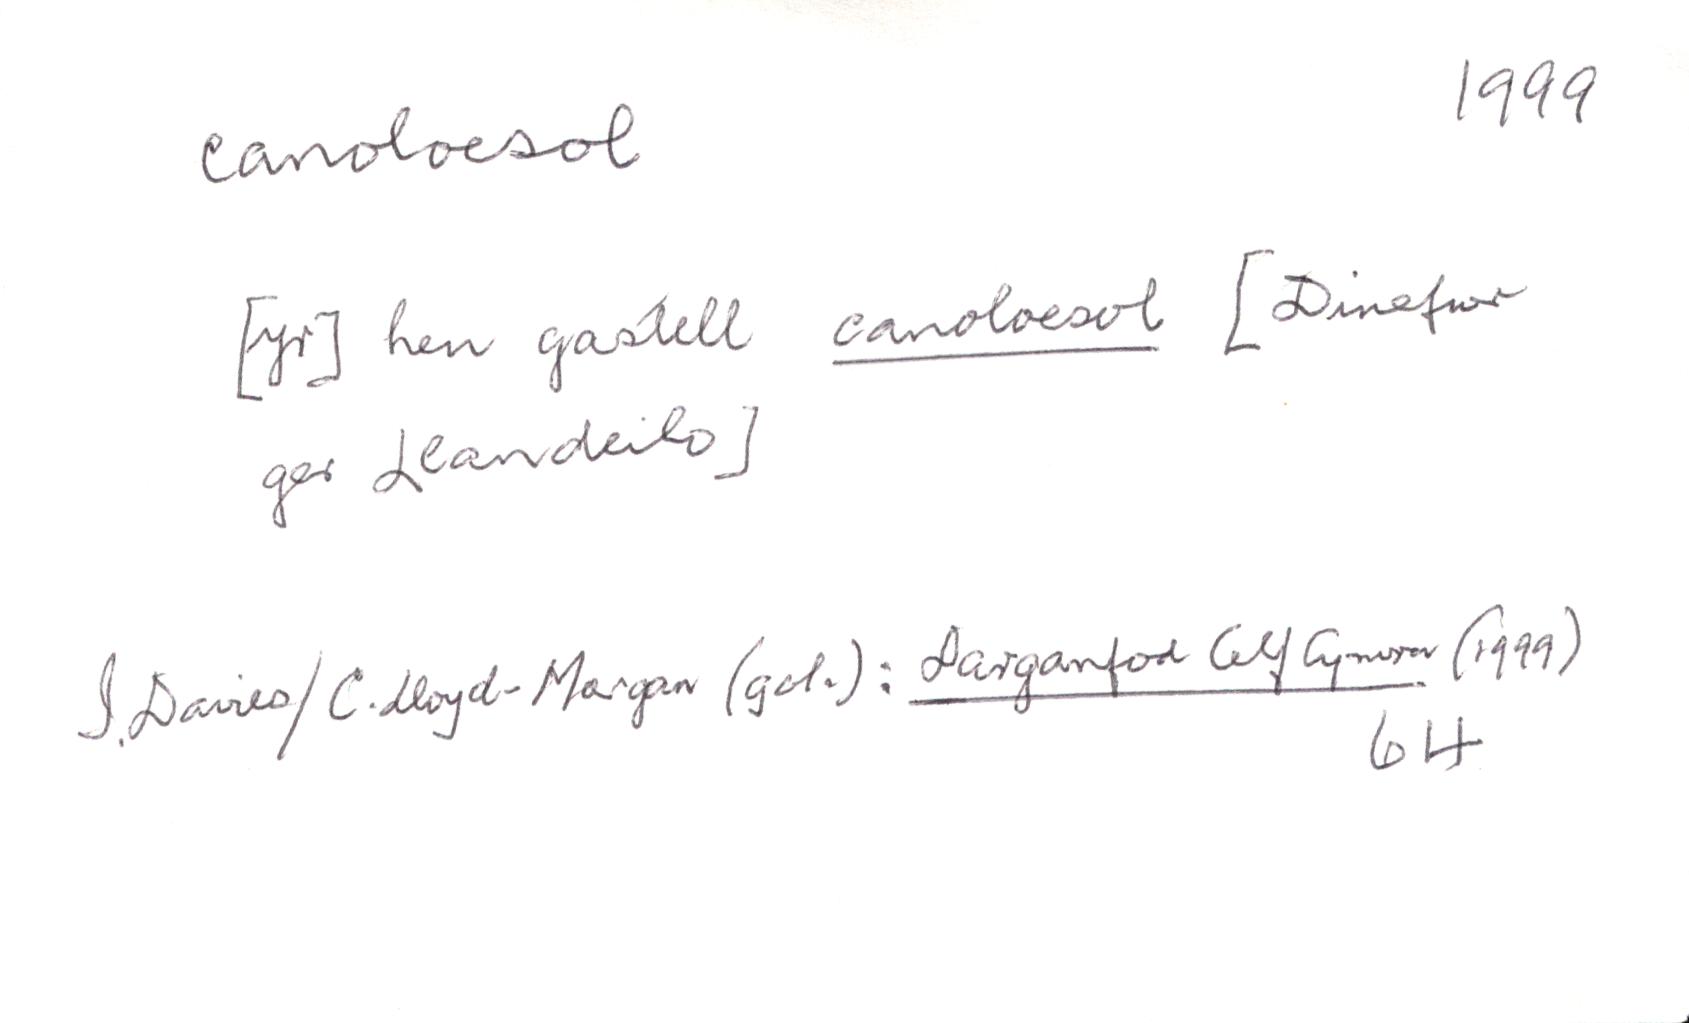 1999
canoloesol
[yr] hen gastell canoloesol [Dinefwr
ger Llandeilo]
I. Davies/C. Lloyd-Morgan (gol.): Darganfod Celf Cymru (1999)
64